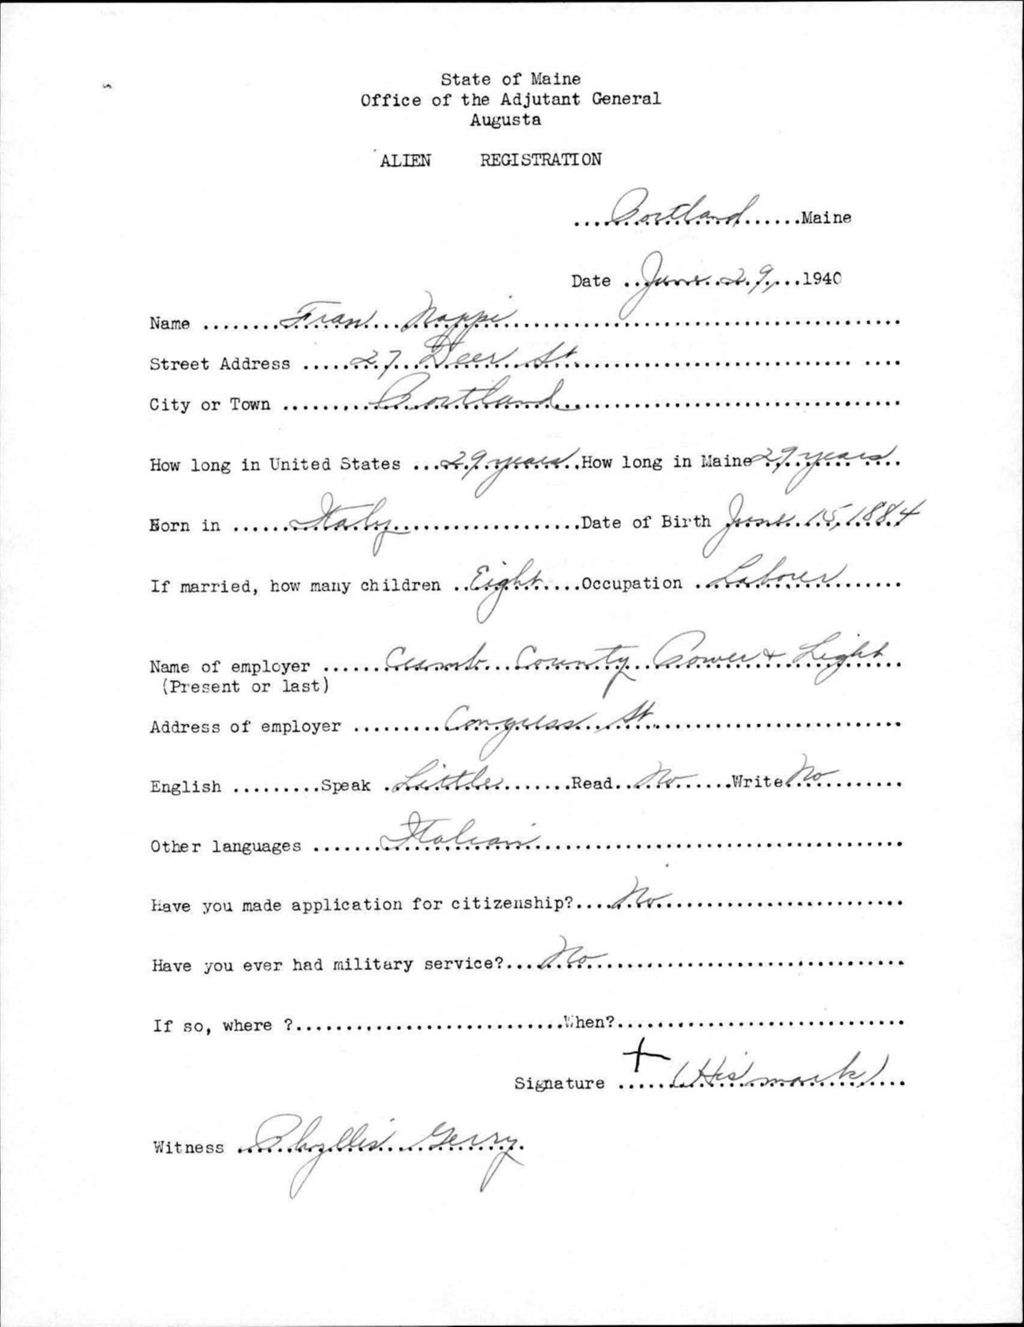 State of Maine
Office of the Adjutant General
Augusta
ALIEN REGISTRATION
....Portland......Maine
Date ..June 29,...1940
Name ........Fran Nappi
Street Address ......27 Deer St.
City or Town .........Portland
How long in United States ...29 years..How long in Maine 29 years
Born in ......Italy...................Date of Birth June 15, 1884
If married, how many children ..Eight....Occupation ..Laborer......
Name of employer ......Cumb. County Power & Light
(Present or last)
Address of employer .........Congress St.
English .........Speak .Little.......Read..No......Write No.........
Other languages .......Italian
Have you made application for citizenship?....No
Have you ever had military service?...No
If so, where ?...........................When?.............................
Signature + (His mark)
Witness Phyllis Gerry.